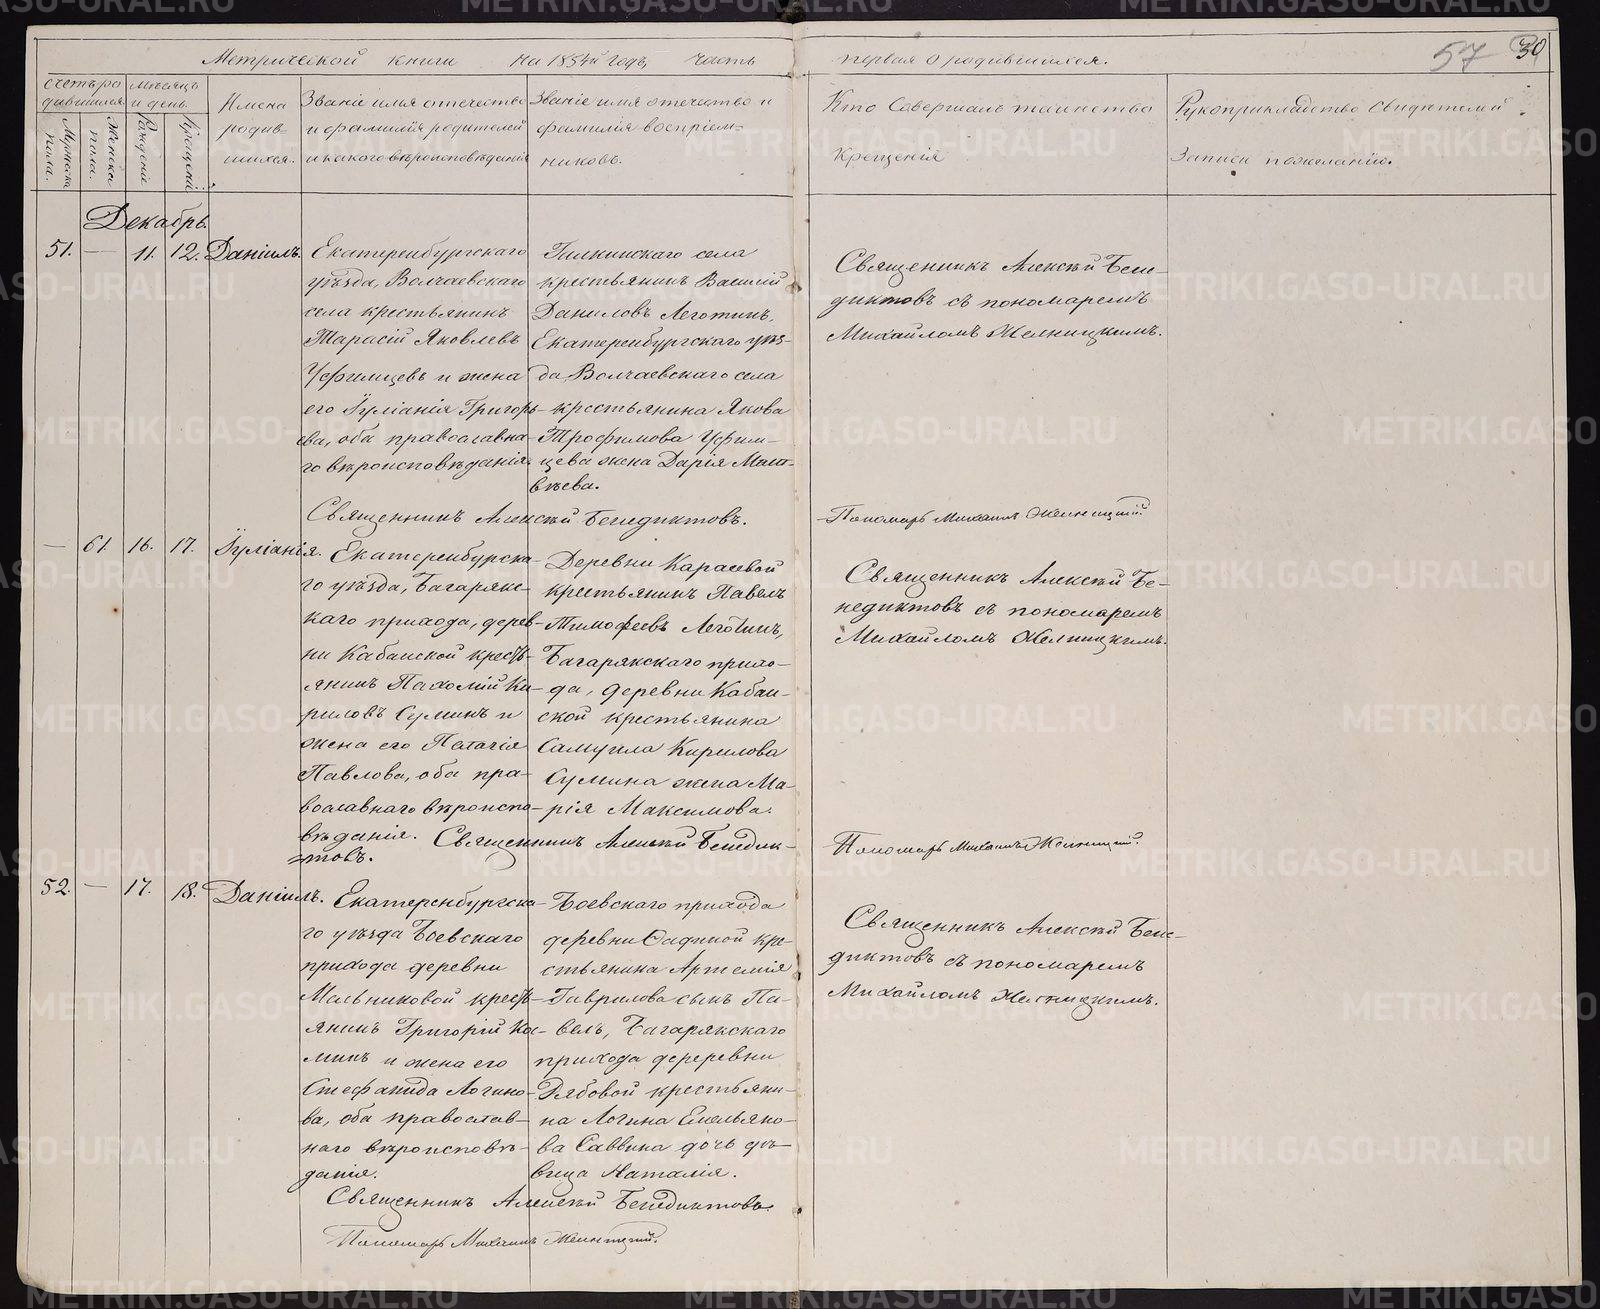 Метрической книги на 1854й годъ, часть первая о родившихся.
57 30
счетъ ро
дившихся
мѣсяцъ
и день.
Мужеска
пола.
Женска
пола.
Рожденія
Крещенія
Имена
родив-
шихся.
Званіе имя отечество
и фамилія родителей
и какого вѣроисповѣданія
Званіе имя отечество и
фамилія воспріем-
никовъ.
Кто совершалъ таинство
Крещенія
Рукоприкладство свидѣтелей
Записи по желанію.
Декабрь.
51. — 11. 12. Даніилъ.
Екатеринбургскаго
уѣзда, Волчаевскаго
села крестьянинъ
Тарасій Яковлевъ
Уфимцевъ и жена
его Іуліанія Григорь-
ева, оба православна-
го вѣроисповѣданія.
села
крестьянинъ Василій
Даниловъ Леготинъ,
Екатеринбургскаго уѣз-
да, Волчаевскаго села
крестьянина Якова
Трофимова Уфим-
цева жена Дарія Мат-
вѣева.
Священникъ Алексѣй Бене-
диктовъ съ пономаремъ
Михайломъ
Священникъ Алексѣй Бенедиктовъ.
Пономарь Михаилъ
— 61. 16. 17. Іуліанія.
Екатеринбурска-
го уѣзда, Багаряк-
каго прихода, дерев-
ни Кабанской кресть-
янинъ Пахомій Ки-
риловъ Суминъ и
жена его Пелагія
Павлова, оба пра-
вославнаго вѣроиспо-
вѣданія.
Деревни Карасевой
крестьянинъ Павелъ
Тимофеевъ Леготинъ,
Багарякскаго прихо-
да, деревни Кабан-
ской крестьянина
Самуила Кирилова
Сумина жена Ма-
рія Максимова.
Священникъ Алексѣй Бе-
недиктовъ съ пономаремъ
Михайломъ
Священникъ Алексѣй Бенедик-
товъ.
Пономарь Михаилъ
52. — 17. 18. Даніилъ.
Екатеринбургска-
го уѣзда Боевскаго
прихода деревни
Мельниковой кресть-
янинъ Григорій Ка-
минъ и жена его
Стефанида Логино-
ва, оба православ-
наго вѣроисповѣ-
данія.
Боевскаго прихода
деревни кре-
стьянина Артемія
Гаврилова сынъ Па-
велъ, Багарякскаго
прихода дереревни
Рябовой крестьяни-
на Логина Емельяно-
ва Саввина дочь дѣ-
вица Наталія.
Священникъ Алексѣй Бене-
диктовъ съ пономаремъ
Михайломъ
Священникъ Алексѣй Бенедиктовъ
Пономарь Михаилъ
METRIKI.GASO-URAL.RU